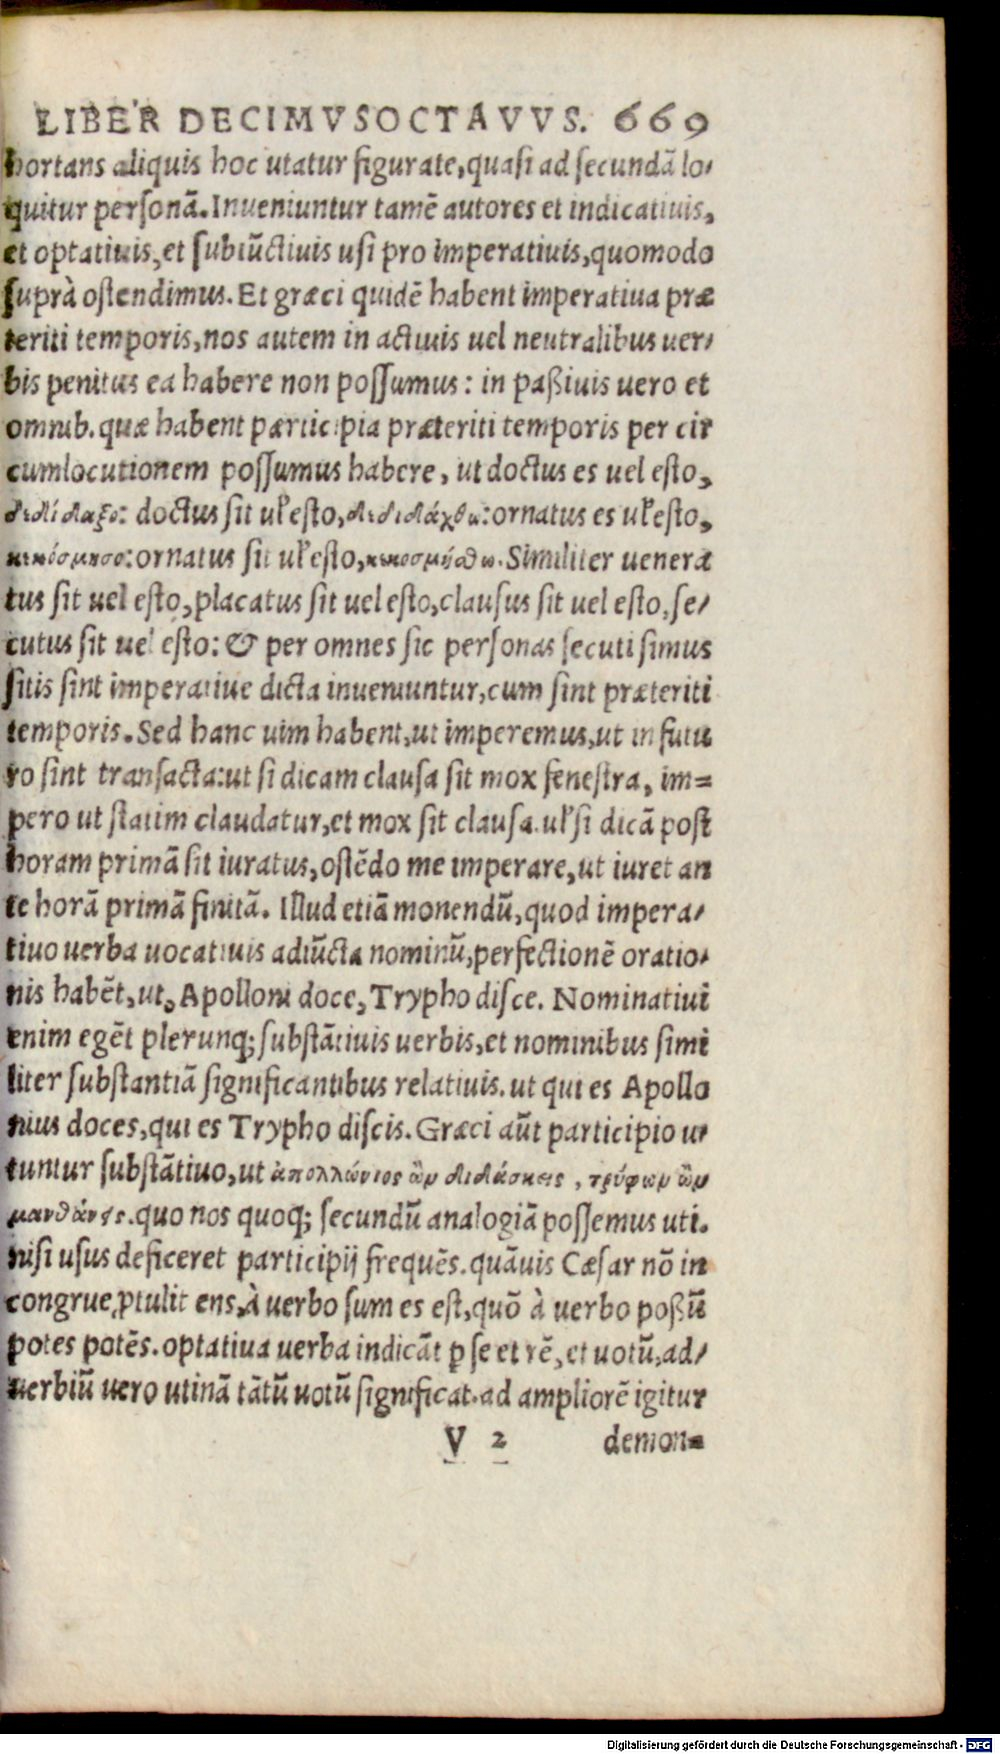 LIBER DECIMVSOCTAVVS. 669
hortans aliquis hoc utatur figurate, quasi ad secundā lo-
quitur personā. Inveniuntur tamē autores et indicativis,
et optativis, et subiūctivis usi pro imperativis, quomodo
suprà ostendimus. Et græci quidē habent imperativa præ
teriti temporis, nos autem in activis vel neutralibus ver-
bis penitus ea habere non possumus: in paßivis vero et
omnib. quæ habent participia præteriti temporis per cir
cumlocutionem possumus habere, ut doctus es vel esto,
δεδίδαξο: doctus sit ul' esto, δεδιδάχθω: ornatus es ul' esto,
κεκόσμησο: ornatus sit ul' esto, κεκοσμήσθω. Similiter venera
tus sit vel esto, placatus sit vel esto, clausus sit vel esto, se-
cutus sit vel esto: & per omnes sic personas secuti simus
sitis sint imperative dicta inveniuntur, cum sint præteriti
temporis. Sed hanc vim habent, ut imperemus, ut in futu
ro sint transacta: ut si dicam clausa sit mox fenestra, im=
pero ut statim claudatur, et mox sit clausa. ul' si dicā post
horam primā sit iuratus, ostēdo me imperare, ut iuret an
te horā primā finitā. Illud etiā monendū, quod impera-
tivo verba vocativis adiūcta nominū, perfectionē oratio-
nis habēt, ut, Apolloni doce, Trypho disce. Nominativi
enim egēt plerunq; substātivis verbis, et nominibus simi
liter substantiā significantibus relativis. ut qui es Apollo
nius doces, qui es Trypho discis. Græci aūt participio u-
tuntur substātivo, ut ἀπολλώνιος ὢν διδάσκεις, τρύφων ὢν
μανθάνεις. quo nos quoq; secundū analogiā possemus uti.
nisi usus deficeret participij frequēs. quāvis Cæsar nō in
congrue ꝓtulit ens, à verbo sum es est, quō à verbo poßū
potes potēs. optativa verba indicāt ꝑ se et rē, et votū, ad-
verbiū vero utinā tātū votū significat. ad ampliorē igitur
V 2 demon=
Digitalisierung gefördert durch die Deutsche Forschungsgemeinschaft - DFG